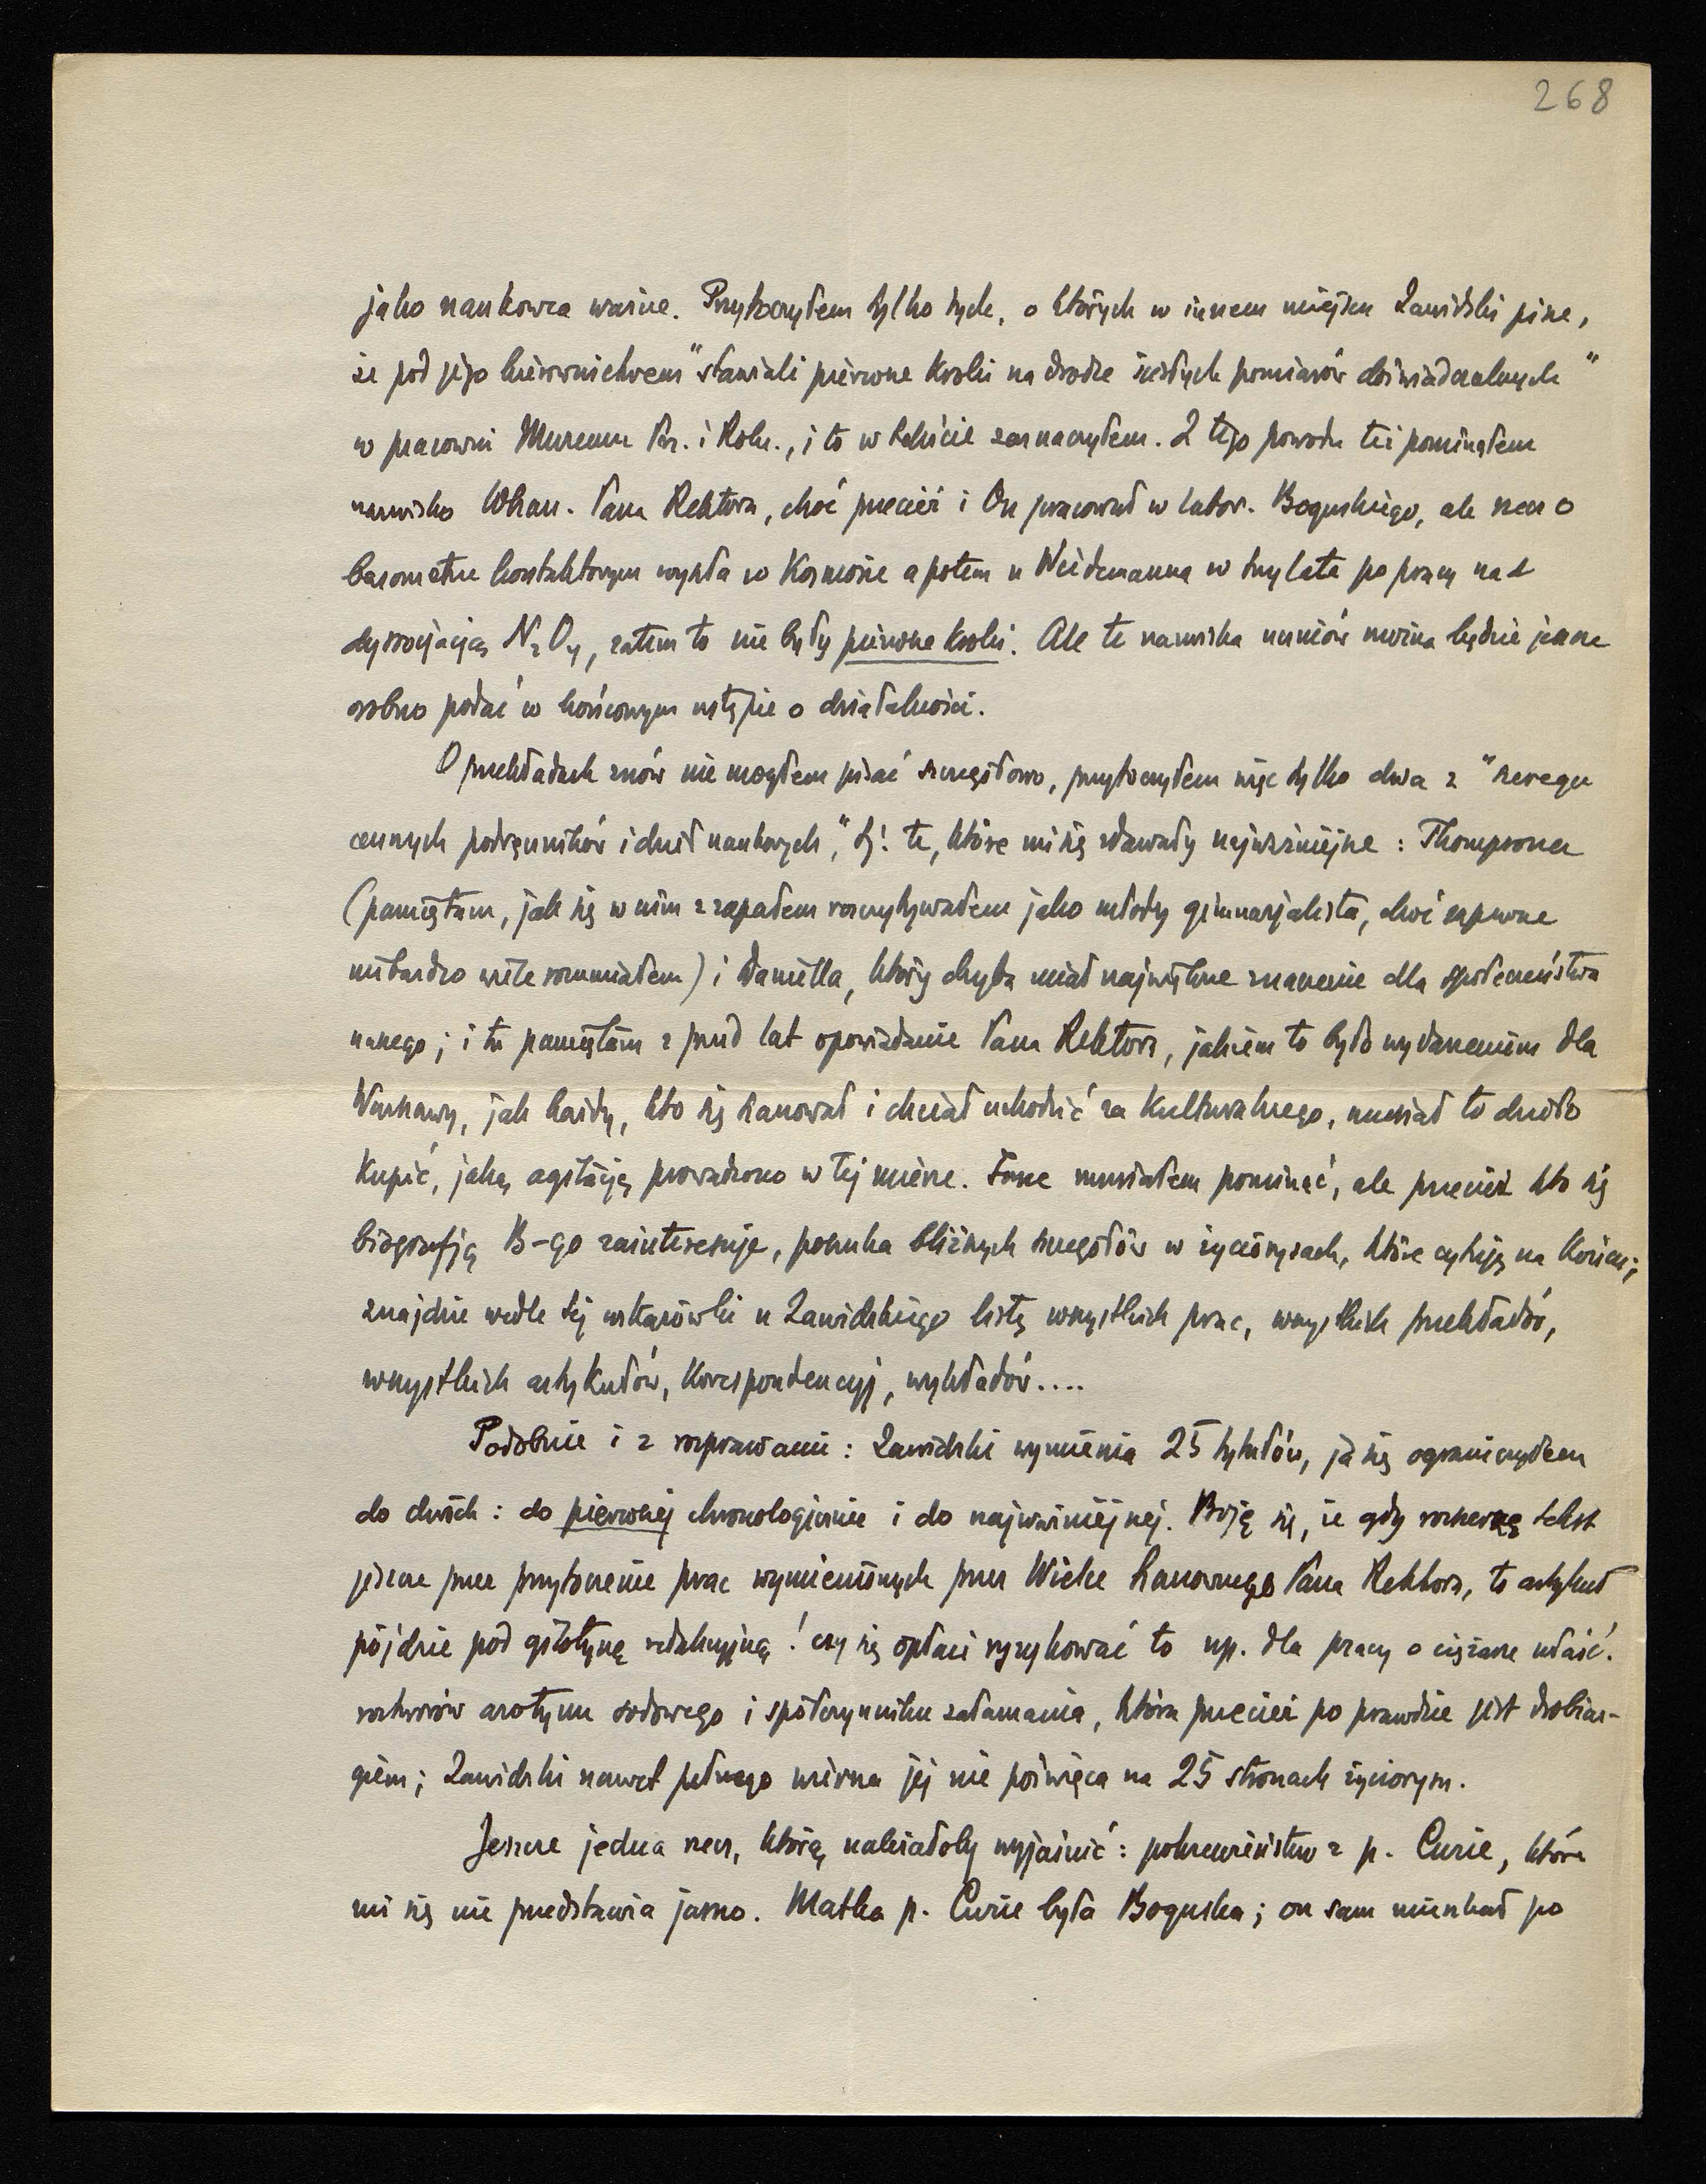 268
jako naukowca ważne. Przytoczyłem tylko tych, o których w innem miejscu Zawidzki pisze,
że pod jego kierownictwem "stawiali pierwsze kroki na drodze ścisłych pomiarów doświadczalnych"
w pracowni Muzeum Prz. i Roln., i to w tekście zaznaczyłem. Z tego powodu też pominąłem
nazwisko Wszan. Pana Rektora, choć przecież i On pracował w labor. Boguskiego, ale rzecz o
barometrze kontaktowym wyszła w Kosmosie a potem u Wiedemanna w trzy lata po pracy nad
dyssocjacją N2O4, zatem to nie były pierwsze kroki. Ale te nazwiska uczniów można będzie jeszcze
osobno podać w końcowym ustępie o działalności.
O przekładach znów nie mogłem pisać szczegółowo, przytoczyłem więc tylko dwa z "szeregu
cennych podręczników i dzieł naukowych", tj. te, które mi się zdawały najważniejsze: Thompsona
(pamiętam, jak się w nim z zapałem rozczytywałem jako młody gimnazjalista, choć zapewne
niebardzo wiele rozumiałem) i Daniella, który chyba miał największe znaczenie dla społeczeństwa
naszego; i tu pamiętam z przed lat opowiadanie Pana Rektora, jakiem to było wydarzeniem dla
Warszawy, jak każdy, kto się szanował i chciał uchodzić za kulturalnego, musiał to dzieło
kupić, jaką agitację prowadzono w tej mierze. Inne musiałem pominąć, ale przecież kto się
biografją B-go zainteresuje, poszuka bliższych szczegółów w życiorysach, które cytuję na końcu;
znajdzie wedle tej wskazówki u Zawidzkiego listę wszystkich prac, wszystkich przekładów,
wszystkich artykułów, korespondencyj, wykładów....
Podobnie i z rozprawami: Zawidzki wymienia 25 tytułów, ja się ograniczyłem
do dwóch: do pierwszej chronologicznie i do najważniejszej. Boję się, że gdy rozszerzę tekst
jeszcze przez przytoczenie prac wymienionych przez Wielce Szanownego Pana Rektora, to artykuł
pójdzie pod gilotynę redakcyjną! czy się opłaci ryzykować to np. dla pracy o ciężarze właść.
roztworów azotynu sodowego i spółczynniku załamania, która przecież po prawdzie jest drobiaz-
giem; Zawidzki nawet pełnego wiersza jej nie poświęca na 25 stronach życiorysu.
Jeszcze jedna rzecz, którą należałoby wyjaśnić: pokrewieństwo z p. Curie, które
mi się nie przedstawia jasno. Matka p. Curie była Boguska; on sam mieszkał po